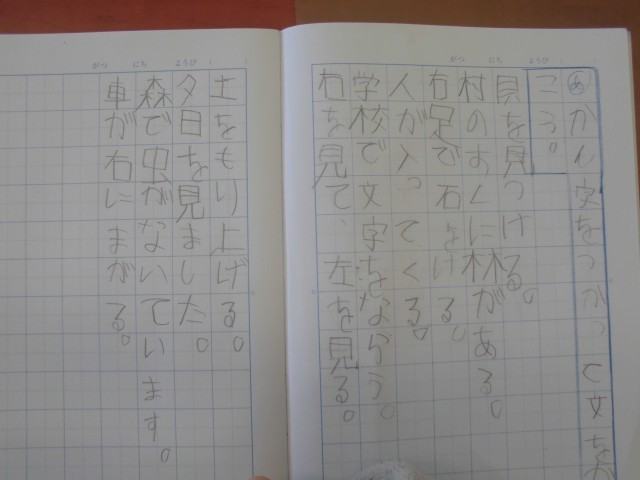 がつ にち ようび
㋐かん字をつかって文をか
こう。
貝を見つける。
村のおくに林がある。
右足で石をける。
人が入ってくる。
学校で文字をならう。
右を見て、左を見る。
がつ にち ようび
土をもり上げる。
夕日を見ました。
森で虫がないています。
車が右にまがる。